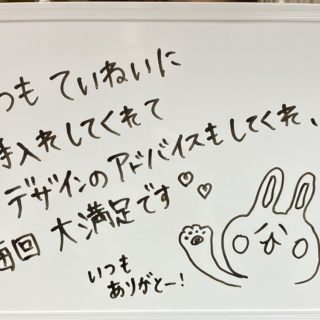 つも ていねいに
手入れしてくれて
デザインのアドバイスもしてくれ、
毎回 大満足です♡♡
いつも
ありがとー!